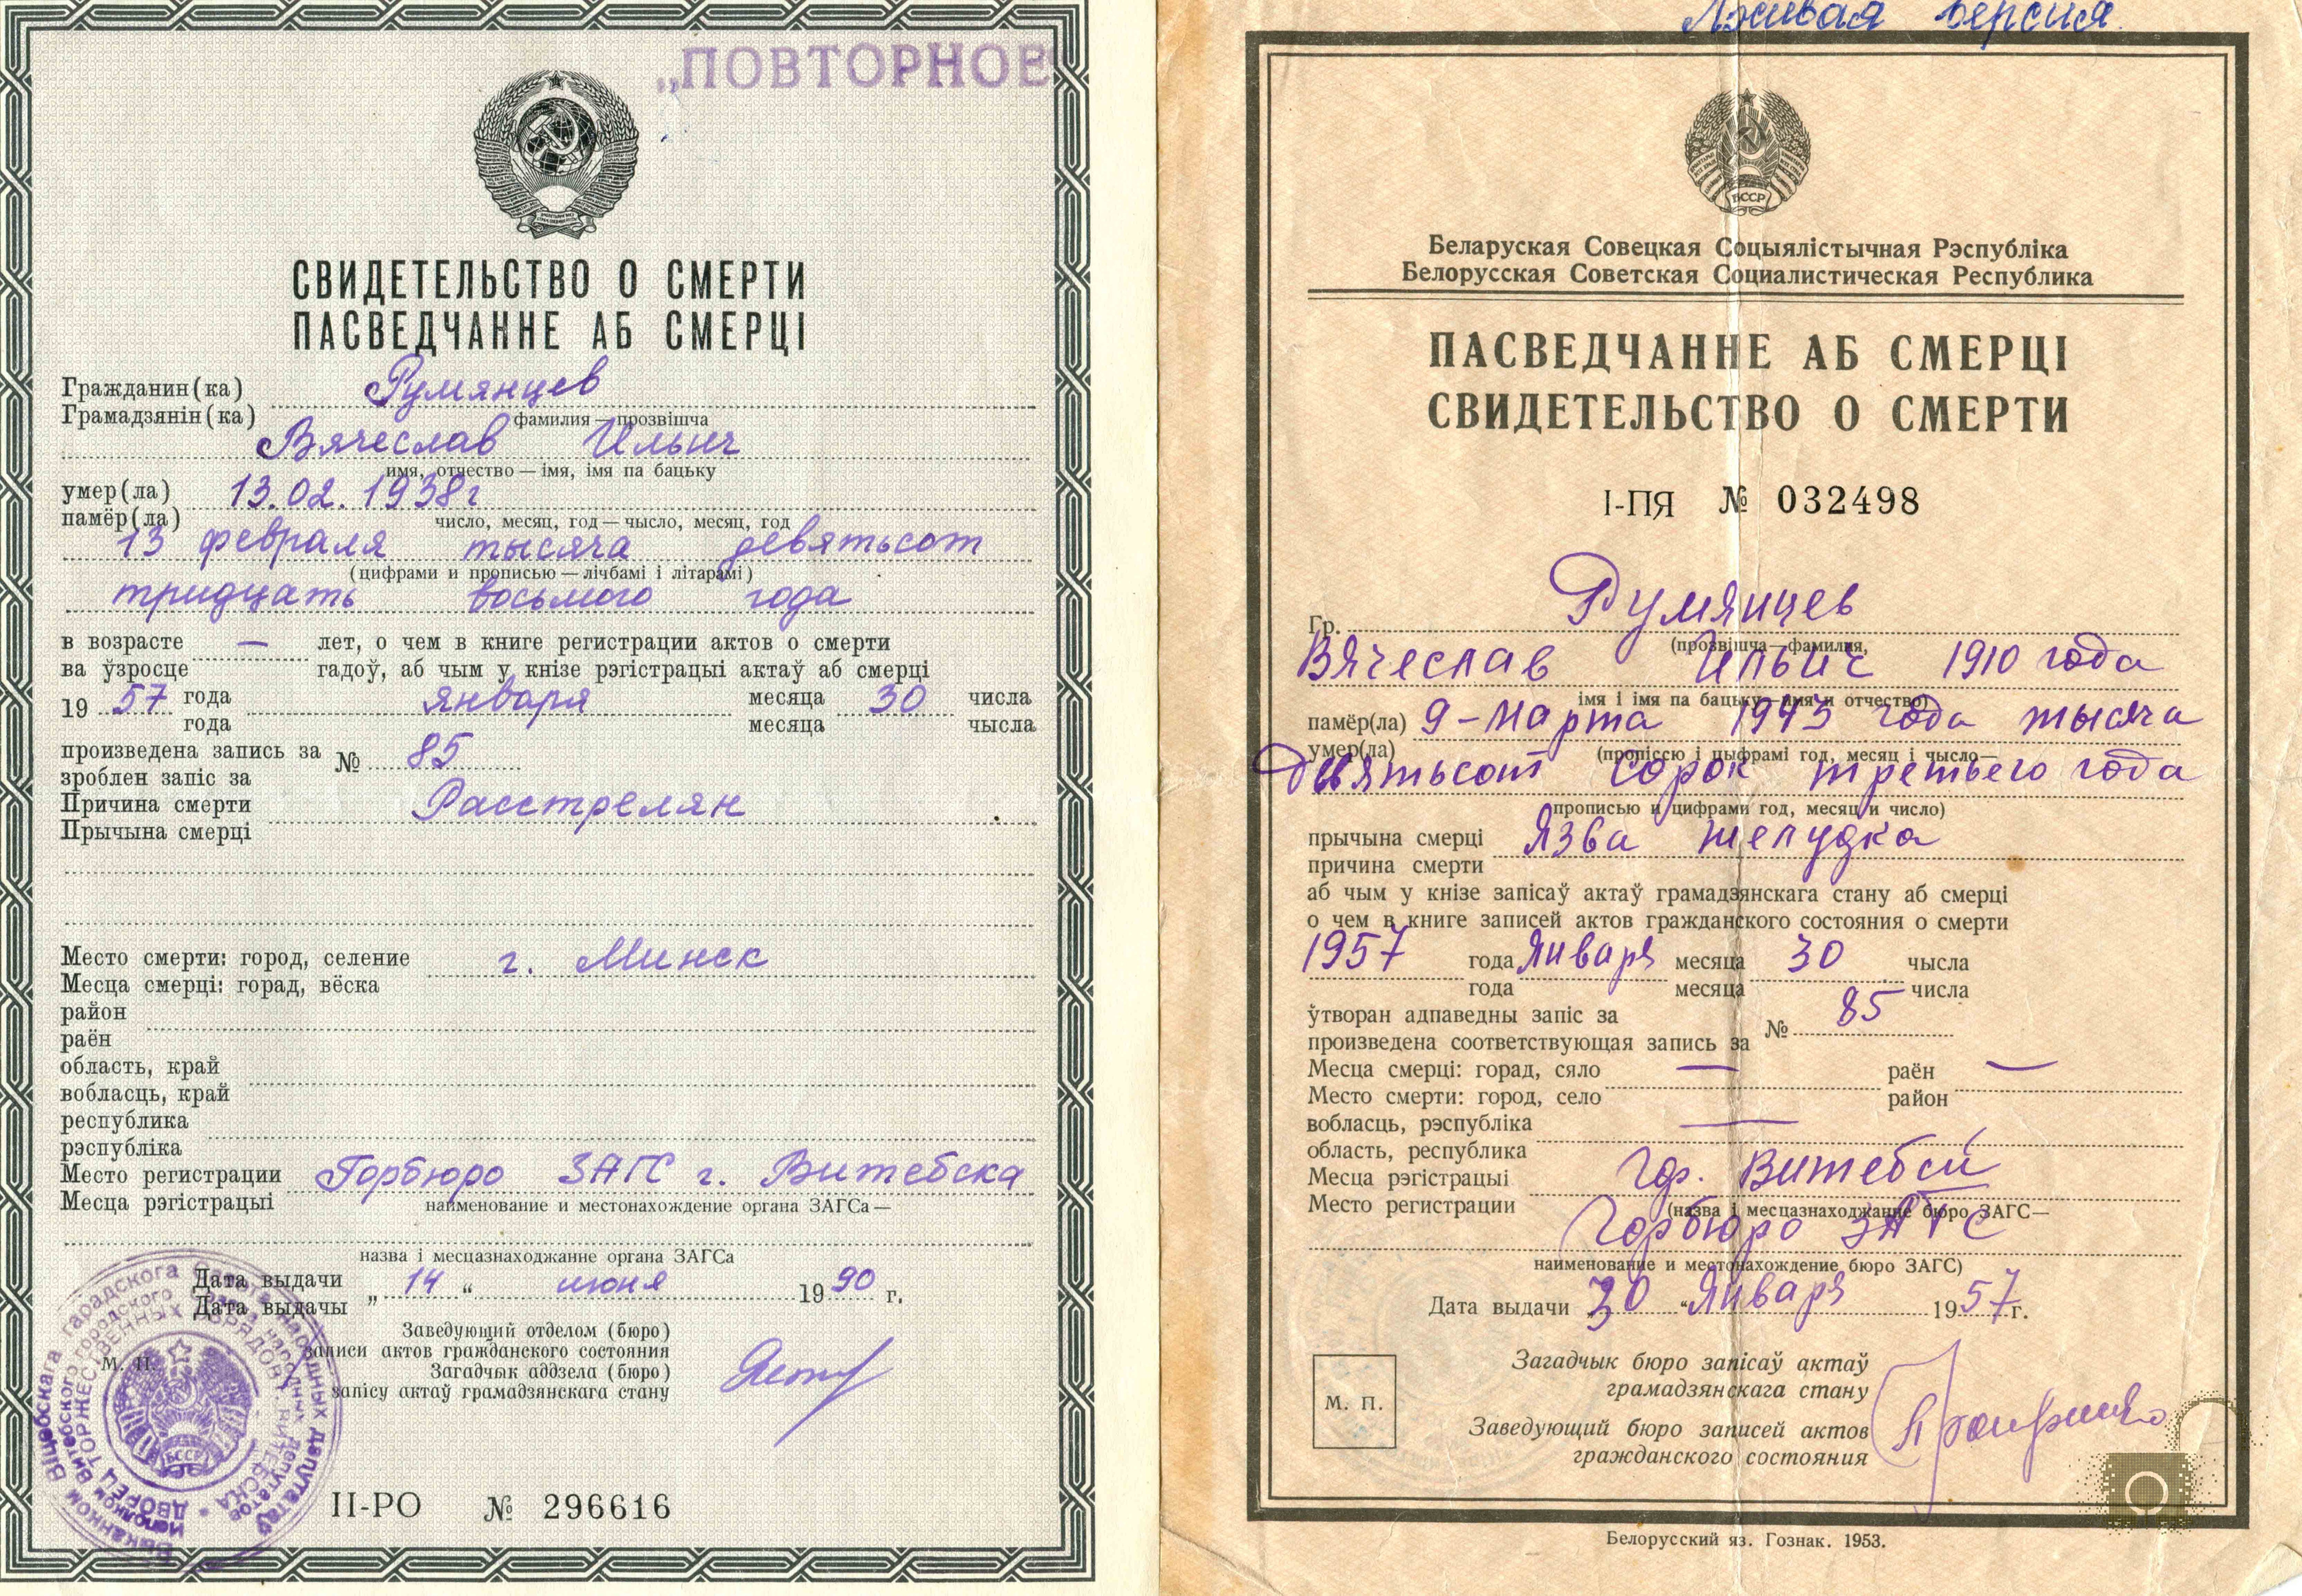 „ПОВТОРНОЕ
СВИДЕТЕЛЬСТВО О СМЕРТИ
ПАСВЕДЧАННЕ АБ СМЕРЦІ
Гражданин(ка) Румянцев
Грамадзянін(ка)
фамилия — прозвішча
Вячеслав Ильич
имя, отчество — імя, імя па бацьку
умер(ла) 13.02.1938г
памёр(ла)
число, месяц, год — чысло, месяц, год
13 февраля тысяча девятьсот
(цифрами и прописью — лічбамі і літарамі)
тридцать восьмого года
в возрасте — лет, о чем в книге регистрации актов о смерти
ва ўзросце гадоў, аб чым у кнізе рэгістрацыі актаў аб смерці
19 57 года января месяца 30 числа
года месяца чысла
произведена запись за № 85
зроблен запіс за
Причина смерти Расстрелян
Прычына смерці
Место смерти: город, селение г. Минск
Месца смерці: горад, вёска
район
раён
область, край
вобласць, край
республика
рэспубліка
Место регистрации Горбюро ЗАГС г. Витебска
Месца рэгістрацыі
наименование и местонахождение органа ЗАГСа —
назва і месцазнаходжанне органа ЗАГСа
Дата выдачи „ 14 “ июня 19 90 г.
Дата выдачы
Заведующий отделом (бюро)
записи актов гражданского состояния
Загадчык аддзела (бюро)
запісу актаў грамадзянскага стану
М. П.
БССР
II-РО № 296616
Лживая версия.
БССР
Беларуская Совецкая Соцыялістычная Рэспубліка
Белорусская Советская Социалистическая Республика
ПАСВЕДЧАННЕ АБ СМЕРЦІ
СВИДЕТЕЛЬСТВО О СМЕРТИ
I-ПЯ № 032498
Гр. Румянцев
(прозвішча—фамилия,
Вячеслав Ильич 1910 года
імя і імя па бацьку—имя и отчество)
памёр(ла) 9-марта 1943 года тысяча
умер(ла)
(пропіссю і цыфрамі год, месяц і чысло—
девятьсот сорок третьего года
прописью и цифрами год, месяц и число)
прычына смерці Язва желудка
причина смерти
аб чым у кнізе запісаў актаў грамадзянскага стану аб смерці
о чем в книге записей актов гражданского состояния о смерти
1957 года Января месяца 30 чысла
года месяца числа
ўтворан адпаведны запіс за № 85
произведена соответствующая запись за
Месца смерці: горад, сяло — раён —
Место смерти: город, село район
вобласць, рэспубліка —
область, республика
Месца рэгістрацыі Гор. Витебск
Место регистрации
(назва і месцазнаходжанне бюро ЗАГС—
Горбюро ЗАГС
наименование и местонахождение бюро ЗАГС)
Дата выдачи 30 “ Января 1957 г.
Загадчык бюро запісаў актаў
грамадзянскага стану
Заведующий бюро записей актов
гражданского состояния
М. П.
Белорусский яз. Гознак. 1953.